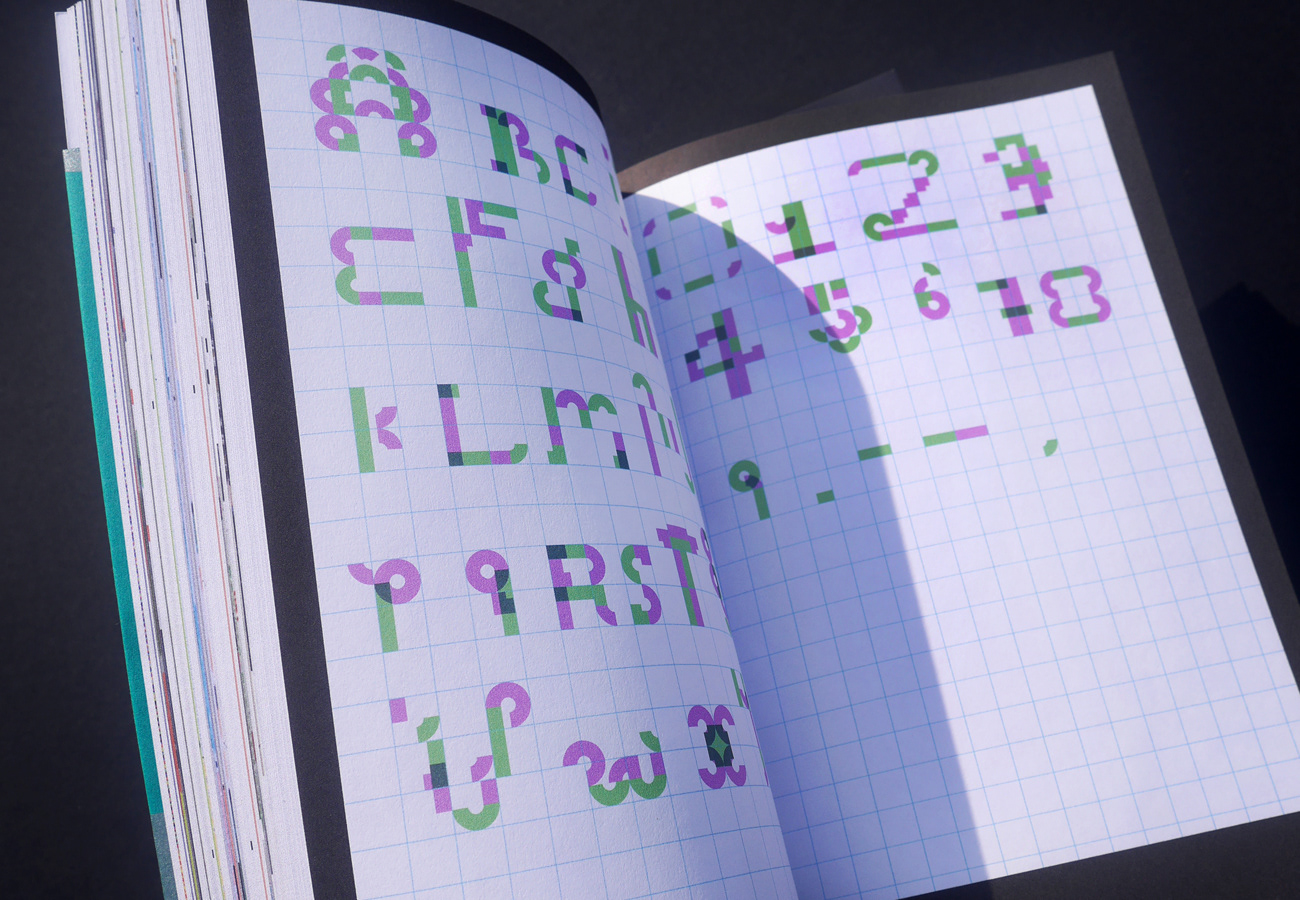 A B C
E F g h
K L m n
p q R S T
v w x
0 1 2 3
4 5 6 7 8
9 . - — ,